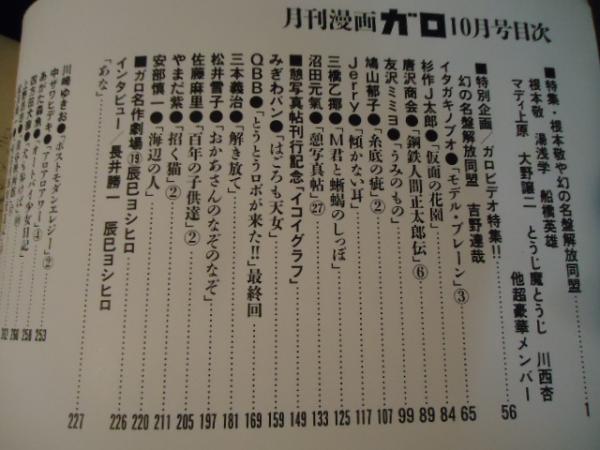 月刊漫画ガロ10月号目次
■特集・根本敬や幻の名盤解放同盟 1
根本敬 湯浅学 船橋英雄
マディ上原 大野讓二 とうじ魔とうじ 川西杏
他超豪華メンバー
■特別企画/ガロビデオ特集!! 56
幻の名盤解放同盟 吉野達哉
イタガキノブオ●「モデル・ブレーン」③ 65
杉作J太郎●「仮面の花園」 84
唐沢商会●「鋼鉄人間正太郎伝」⑥ 89
友沢ミミヨ●「うみのもの」 99
鳩山郁子●「糸底の疵」② 107
Jerry●「傾かない耳」 117
三橋乙揶●「M君と蜥蜴のしっぽ」 125
沼田元氣●「憩写真帖」㉗ 133
■憩写真帖刊行記念「イコイグラフ」 149
みぎわパン●「はごろも天女」 159
QBB●「とうとうロボが来た!!」最終回 169
三本義治●「解き放て」 181
松井雪子●「おかあさんのなぞのなぞ」 197
佐藤麻里●「百年の子供達」② 205
やまだ紫●「招く猫」② 211
安部慎一●「海辺の人」 220
■ガロ名作劇場⑲辰巳ヨシヒロ 226
インタビュー/長井勝一 辰巳ヨシヒロ
「あな」 227
川崎ゆきお●「ポストモダンエレジー」② 253
中ザワヒデキ●「アロアロアワー」④ 258
あがた森魚●「オートバイ少女日記」 260